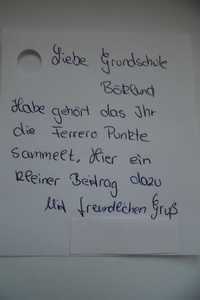 Liebe Grundschule
Böklund
Habe gehört das Ihr
die Ferrero Punkte
sammelt, Hier ein
kleiner Beitrag dazu
Mit freundlichen Gruß